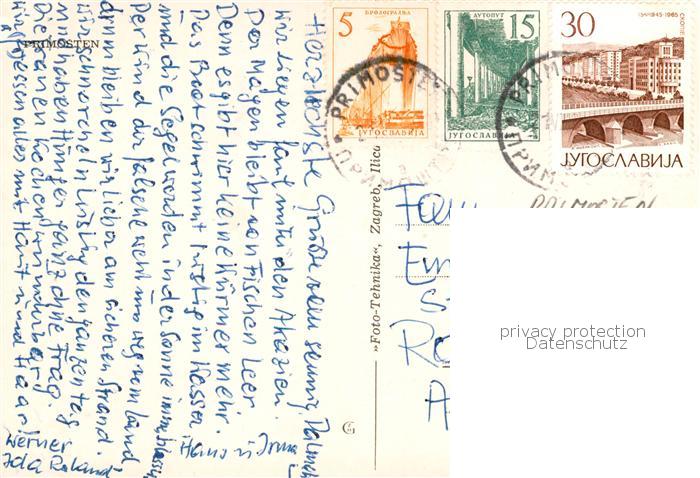 PRIMOSTEN
Herzlichste Grüße vom sonnig. Dalmat
wir liegen faul unter den Akazien.
Der Magen bleibt von Fischen leer
Denn es gibt hier keine Würmer mehr.
Das Boot schwimmt lustig im Wasser
und die Segel werden in der Sonne immer blasser
Der Wind der falsche weht uns weg vom Land
drum bleiben wir lieber am sicheren Strand.
wir schnorcheln lustig den ganzen Tag
wir haben Hunger ganz ohne Frag.
Die Frauen kochen wunderbar
wir essen alles mit Haut und Haar!
Hans u Irma
Werner
Ida Roland
5
БРОДОГРАДЊА
ЈУГОСЛАВИЈА
АУТОПУТ
15
JUGOSLAVIJA
30
1945-1965
СКОПЈЕ
ЈУГОСЛАВИЈА
PRIMOSTEN
ПРИМОШТЕН
PRIMOSTEN
ПРИМОШТЕН
»Foto-Tehnika«, Zagreb, Ilica
Fam
PRIMOSTEN
privacy protection
Datenschutz